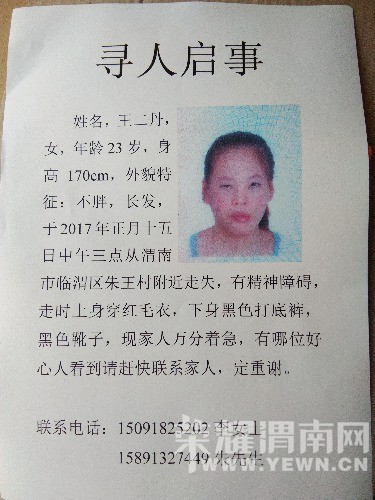 寻人启事
姓名，王二丹，
女，年龄23岁，身
高 170cm，外貌特
征：不胖，长发，
于2017年正月十五
日中午三点从渭南
市临渭区朱王村附近走失，有精神障碍，
走时上身穿红毛衣，下身黑色打底裤，
黑色靴子，现家人万分着急，有哪位好
心人看到请赶快联系家人，定重谢。
联系电话：15091825202 李女士
15891327449 朱先生
荣耀渭南网
WWW.YEWN.CN